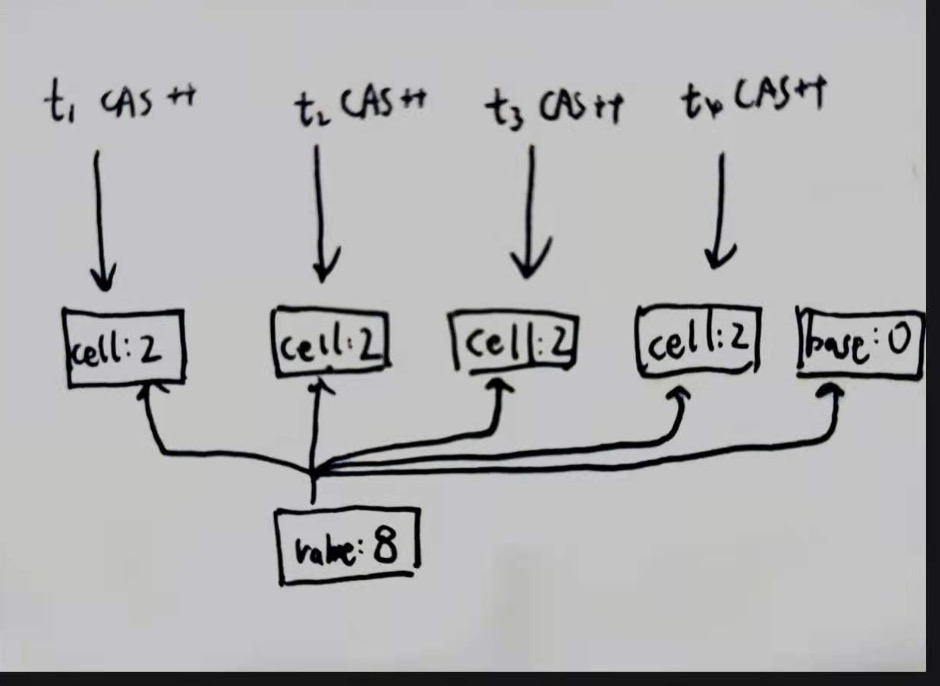 t₁ CAS ++
t₂ CAS ++
t₃ CAS ++
t₄ CAS ++
cell: 2
cell: 2
cell: 2
cell: 2
base: 0
value: 8